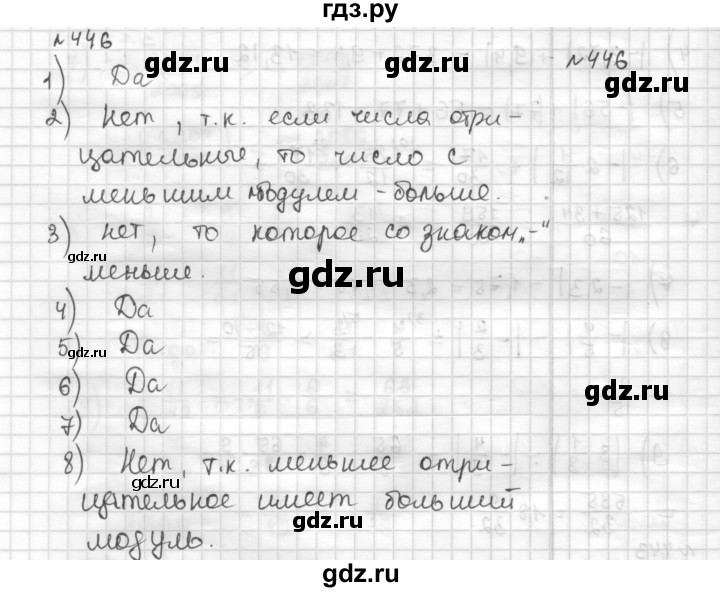 гдз.ру
№446
№446
gdz.ru gdz.ru
1) Да
2) Нет, т.к. если числа отри-
цательные, то число с
меньшим модулем - больше.
3) нет, то которое со знаком „-“
меньше.
gdz.ru
gdz.ru
4) Да
5) Да
gdz.ru
6) Да
gdz.ru
7) Да
8) Нет, т.к. меньшее отри-
gdz.ru
цательное имеет больший
gdz.ru
модуль.
gdz.ru